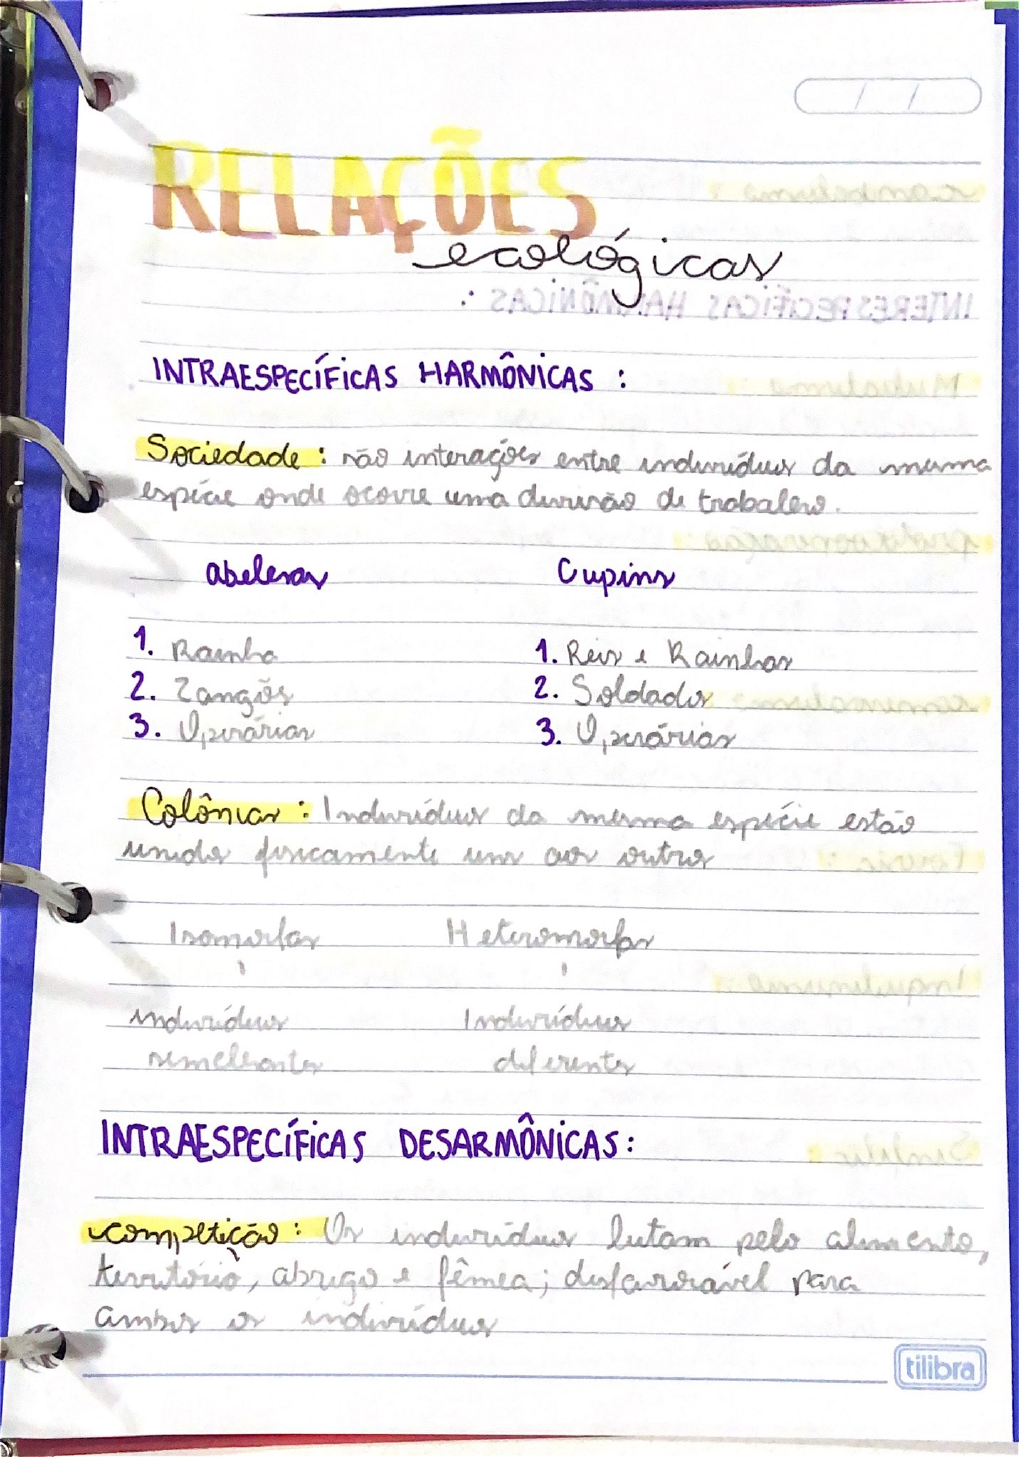 RELAÇÕES
ecológicas
INTRAESPECÍFICAS HARMÔNICAS :
Sociedade : são interações entre indivíduos da mesma
espécie onde ocorre uma divisão de trabalho.
abelhas Cupins
1. Rainha 1. Reis e Rainhas
2. Zangões 2. Soldados
3. Operárias 3. Operárias
Colônias : Indivíduos da mesma espécie estão
unidos fisicamente uns aos outros
Isomorfas Heteromorfas
indivíduos Indivíduos
semelhantes diferentes
INTRAESPECÍFICAS DESARMÔNICAS :
competição : Os indivíduos lutam pelo alimento,
território, abrigo e fêmea; desfavorável para
ambos os indivíduos
tilibra